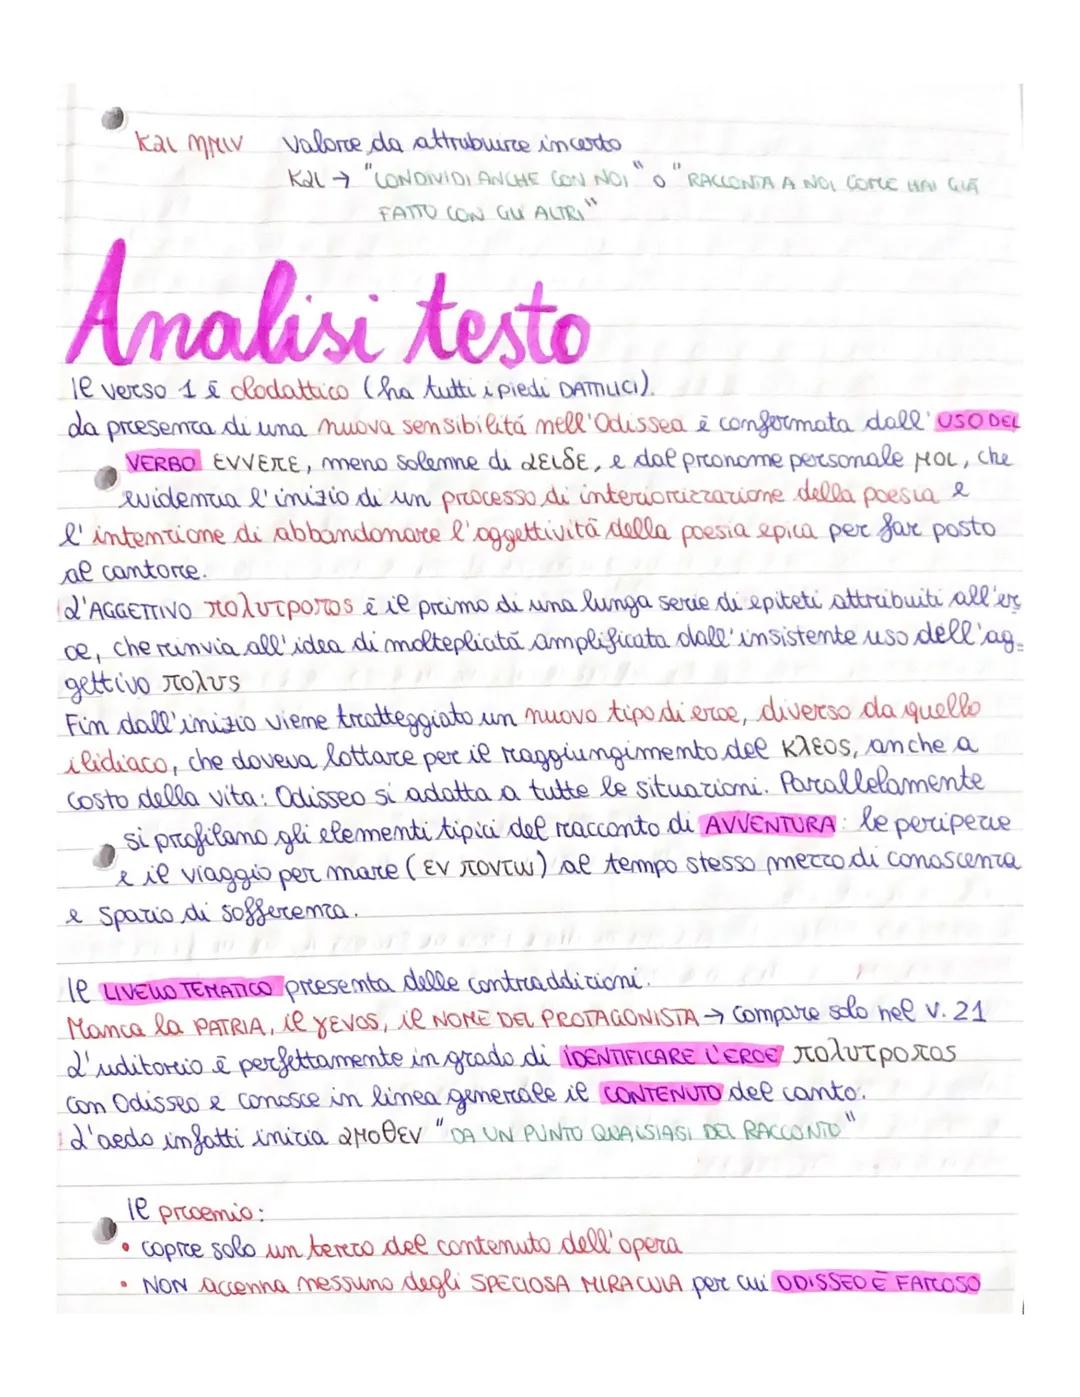 και ημιν valore da attrubuire incerto
και → "CONDIVIDI ANCHE CON NOI" o "RACCONTA A NOI COME HAI GIÀ
FATTO CON GLI ALTRI"
Analisi testo
Il verso 1 è olodattico (ha tutti i piedi DATTILICI).
La presenza di una nuova sensibilità nell'Odissea è confermata dall'USO DEL
VERBO εννεπε, meno solenne di αειδε, e dal pronome personale μοι, che
evidenzia l'inizio di un processo di interiorizzazione della poesia e
l'intenzione di abbandonare l'oggettività della poesia epica per far posto
al cantore.
L'AGGETTIVO πολυτροπος è il primo di una lunga serie di epiteti attribuiti all'er
oe, che rinvia all'idea di molteplicità amplificata dall'insistente uso dell'ag-
gettivo πολυς
Fin dall'inizio viene tratteggiato un nuovo tipo di eroe, diverso da quello
ilidiaco, che doveva lottare per il raggiungimento del κλεος, anche a
costo della vita: Odisseo si adatta a tutte le situazioni. Parallelamente
si profilano gli elementi tipici del racconto di AVVENTURA: le peripezie
e il viaggio per mare (εν ποντω) al tempo stesso mezzo di conoscenza
e spazio di sofferenza.
Il LIVELLO TEMATICO presenta delle contraddizioni.
Manca la PATRIA, il γενος, il NOME DEL PROTAGONISTA → compare solo nel v. 21
L'uditorio è perfettamente in grado di IDENTIFICARE L'EROE πολυτροπος
con Odisseo e conosce in linea generale il CONTENUTO del canto.
L'aedo infatti inizia αμοθεν "DA UN PUNTO QUALSIASI DEL RACCONTO"
Il proemio:
• copre solo un terzo del contenuto dell'opera
• NON accenna nessuno degli SPECIOSA MIRACULA per cui ODISSEO È FAMOSO